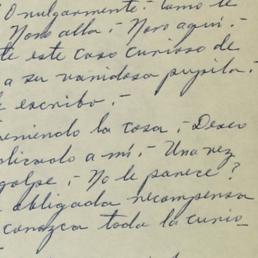 vulgarmente. como le
Nono alla, - Nono aquí. -
te este caso curioso de
a su vanidosa pupila. -
le escribo. -
eniendo la cosa, - Deseo
plicado a mí. - Una vez
golpe. - No le parece?
obligada recompensa
conozca toda la curio-